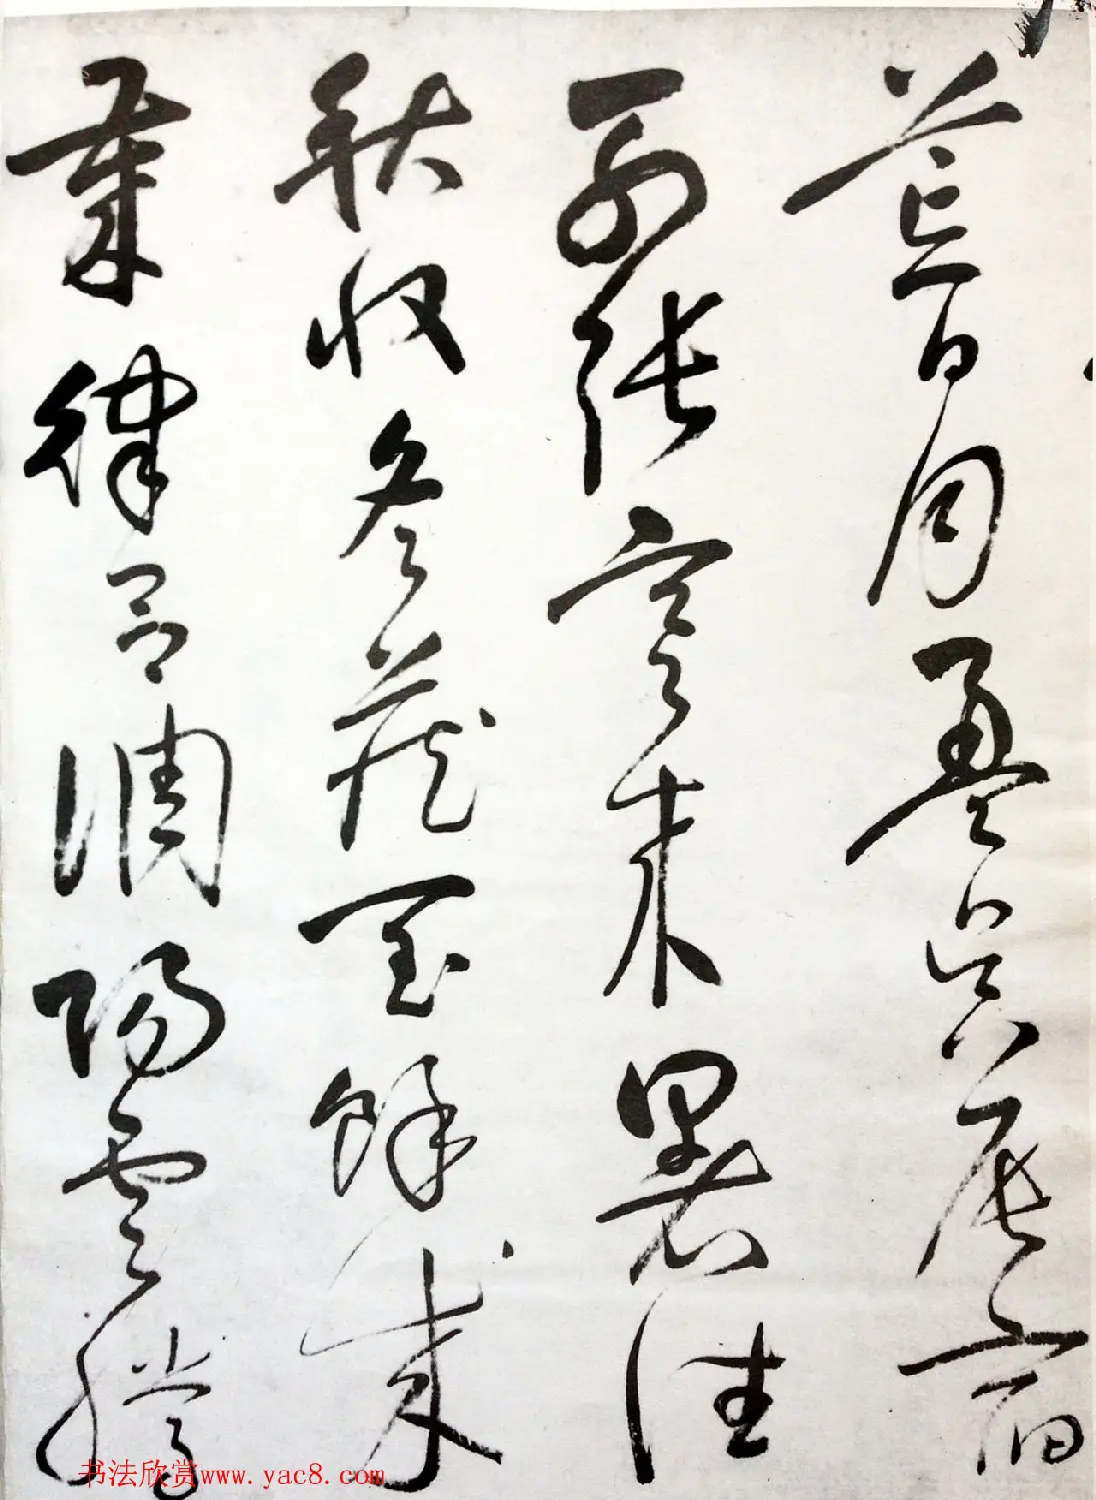 荒日月盈昃辰宿
列張寒来暑往
秋收冬藏閏餘成
歲律呂調陽雲騰
书法欣赏www.yac8.com